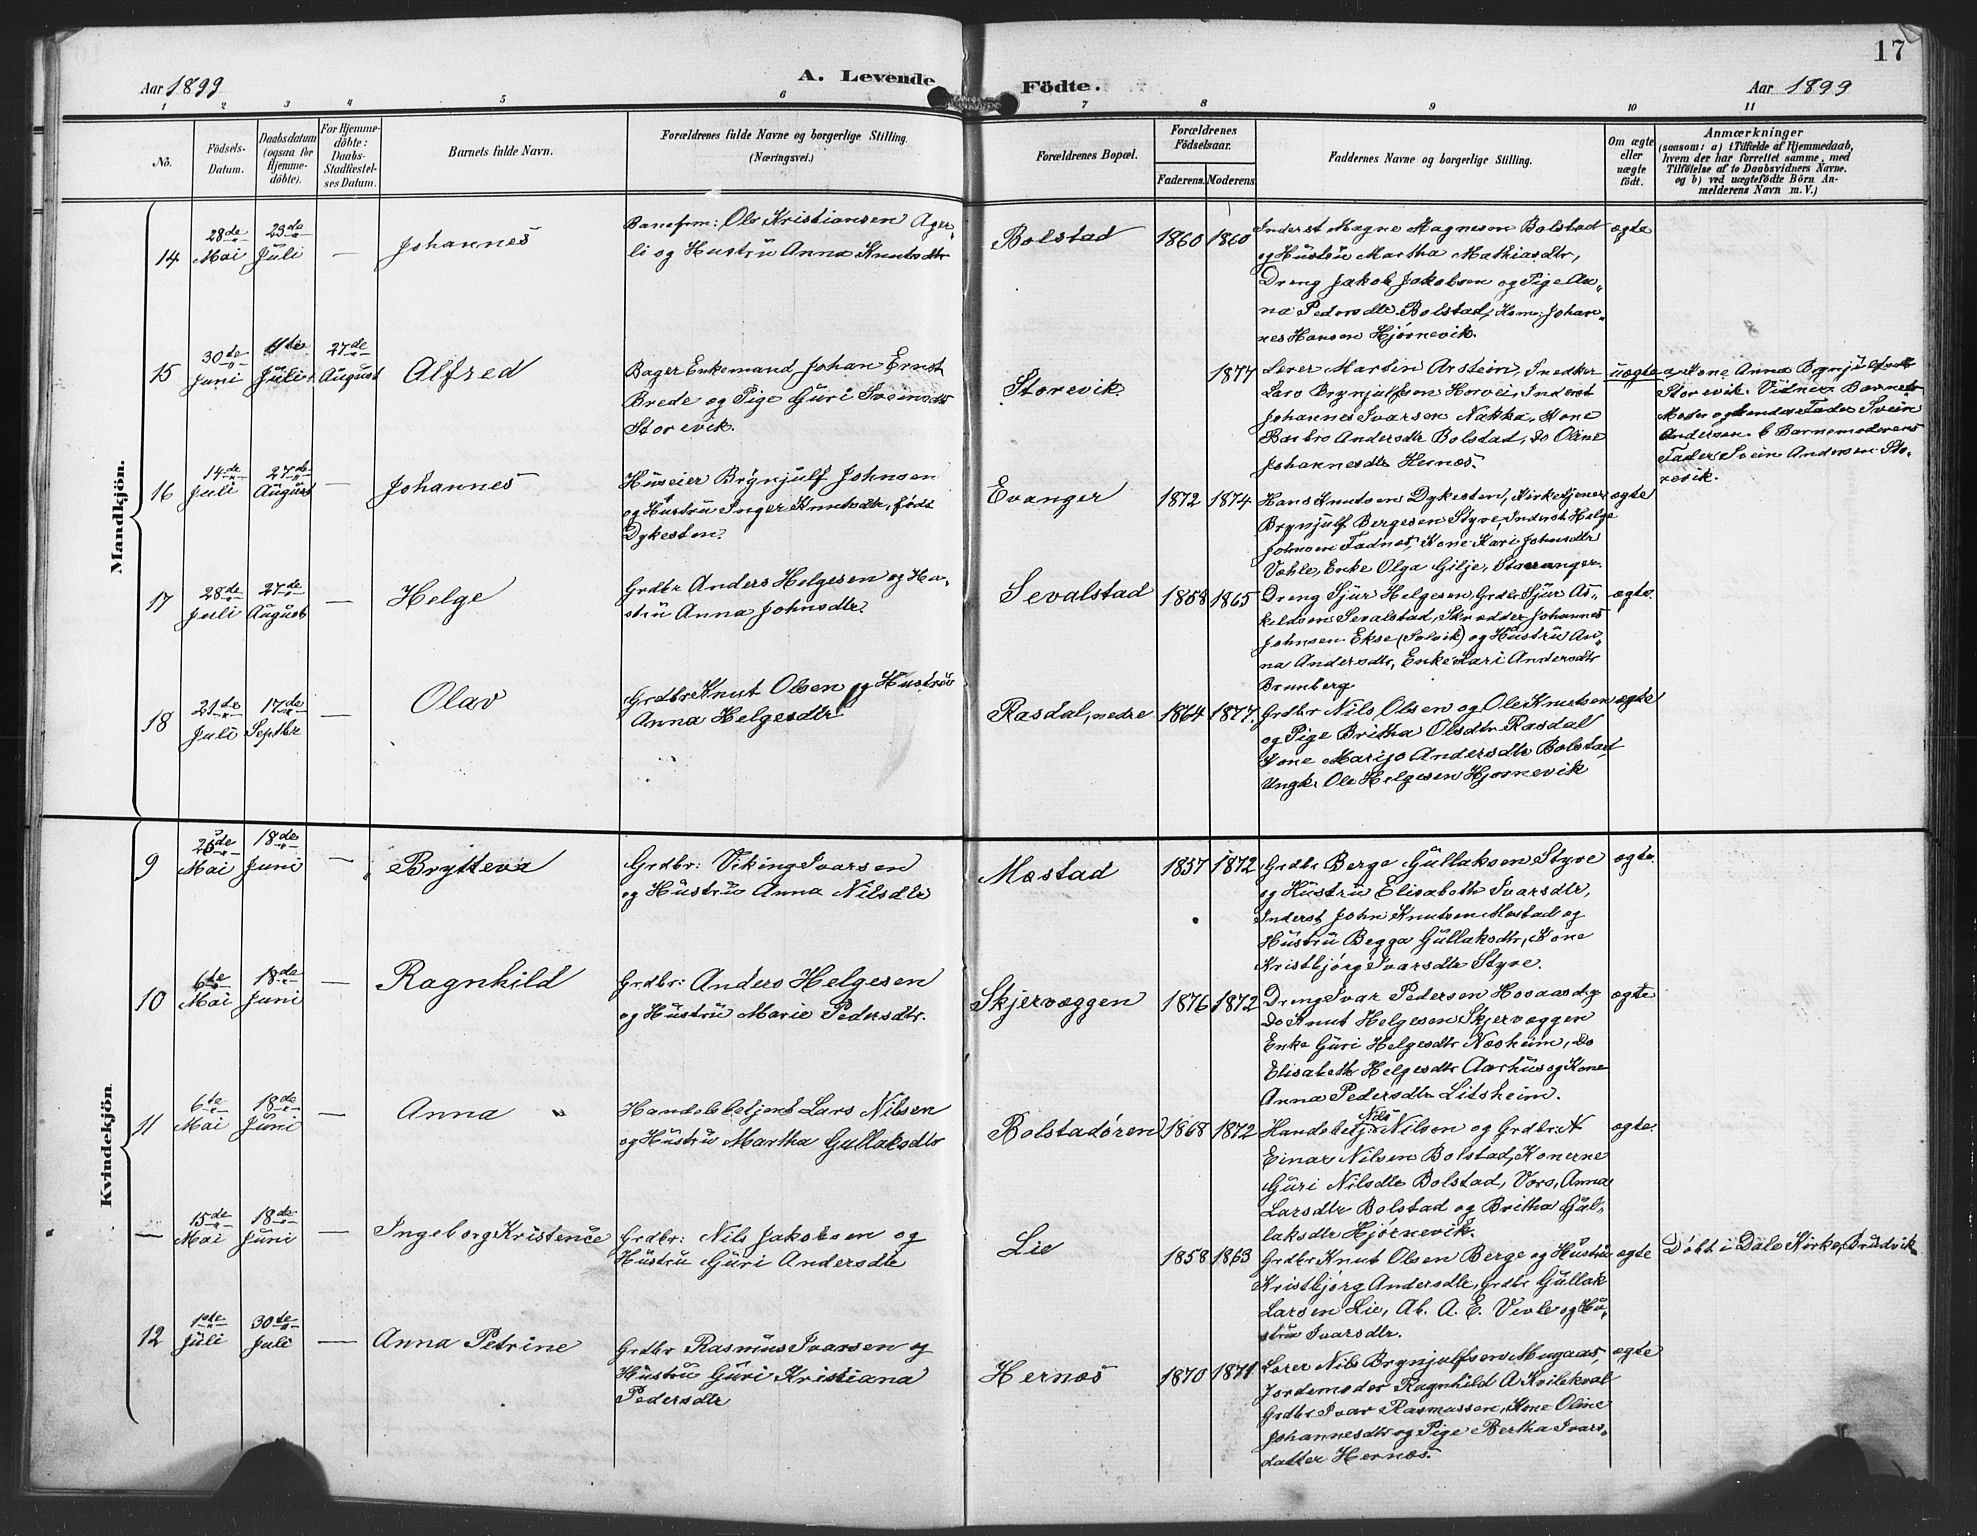 17
Aar 1899
A. Levende Födte.
Aar 1899
1 2 3 4 5 6 7 8 9 10 11
No.
Födsels-
Datum.
Daabsdatum
(ogsaa for
Hjemme-
döbte).
For Hjemme-
döbte:
Daabs-
Stadfæstel-
ses Datum.
Barnets fulde Navn.
Forældrenes fulde Navne og borgerlige Stilling.
(Næringsvei.)
Forældrenes Bopæl.
Forældrenes
Födselsaar.
Faderens. Moderens.
Faddernes Navne og borgerlige Stilling.
Om ægte
eller
uægte
födt.
Anmærkninger
(saasom: a) i Tilfælde af Hjemmedaab,
hvem der har forrettet samme, med
Tilföielse af to Daabsvidners Navne.
og b) ved uægtefödte Börn An-
melderens Navn m. V.)
Mandkjön.
14
28de Mai
23de Juli
—
Johannes
Baneform: Ole Kristiansen Ager-
li og Hustru Anna Knutsdtr
Bolstad
1860 1860
Inderst Magne Magnesen Bolstad
og Hustru Martha Mathiasdtr,
Dreng Jakob Jakobsen og Pige An-
na Pedersdtr Bolstad, Johan-
nes Hansen Hjørnevik.
ægte
15
30te Juni
Juli
27de August
Alfred
Bager Enkemand Johan Ernst
Brede og Pige Guri Sveinsdtr
Storevik.
Storevik.
1877
Lærer Martin Arstein, Snedker
Lars Brynjulfsen Horvei, Inderst
Johannes Ivarsen Nakka, Kone
Barbro Andersdtr Bolstad, Do Oline
Johannesdtr Hernæs.
uægte
a, Kone Anna Brynjulfsdtr
Storevik. Vidner Barnets
Moder og hendes Fader Svein
Andersen. b Barnemoderens
Fader Svein Andersen Sto-
revik.
16
14de Juli
27de August
—
Johannes
Huseier Brynjulf Johnsen
og Hustru Inger Knutsdtr, født
Dykesten.
Evanger
1872 1874
Hans Knutsen Dykesten, Kirketjener
Brynjulf Bergesen Styve, Inderst Helge
Johnsen Fadnes, Kone Kari Johnsdtr
Væhle, Enke Olga Gilje, Stavanger.
ægte
17
28de Juli
27de August
—
Helge
Grdbr Anders Helgesen og Hu-
stru Anna Johnsdtr.
Sevalstad
1858 1865
Dreng Sjur Helgesen, Grdbr Sjur As-
keldsen Sevalstad, Skrædder Johannes
Johnsen Ekse (Solvik) og Hustru An-
na Andersdtr, Enke Kari Andersdtr
Brunberg
ægte.
18
21de Juli
17de Septbr
—
Olav
Grdbr Knut Olsen og Hustru
Anna Helgesdtr
Rasdal, nedre
1864 1877.
Grdbr Nils Olsen og Ole Knutsen
og Pige Britha Olsdtr Rasdal
Kone Marijo Andersdtr Bolstad
Ungk. Ole Helgesen Hjørnevik
ægte
Kvindekjön.
9
Mai
18de Juni
—
Brytteva
Grdbr: Viking Ivarsen
og Hustru Anna Nilsdtr
Mæstad
1857 1872
Grdbr Berge Gullaksen Styve
og Hustru Elisabeth Ivarsdtr,
Inderst John Knutsen Mæstad og
Hustru Begga Gullaksdtr, Kone
Kristbjørg Ivarsdtr Styve.
ægte.
10
6te Mai
18de Juni
—
Ragnhild
Grdbr: Anders Helgesen
og Hustru Marie Pedersdtr.
Skjervæggen
1876 1872
Dreng Ivar Pedersen Hosaas og
Do Knut Helgesen Skjervæggen
Enke Guri Helgesdtr Næsheim, Do
Elisabeth Helgesdtr Aarhus og Kone
Anna Pedersdtr Litsheim.
ægte
11
6te Mai
18de Juni
—
Anna
Handelsbetjent Lars Nilsen
og Hustru Martha Gullaksdtr
Bolstadøren
1868 1872
Handelsbetj. Nils Nilsen og Grdbr: N
Einar Nilsen Bolstad, Konerne
Guri Nilsdtr Bolstad, Voss, Anna
Larsdtr Bolstad og Britha Gul-
laksdtr Hjørnevik.
ægte.
—
15de Mai
18de Juni
—
Ingeborg Kristence
Grdbr: Nils Jakobsen og
Hustru Guri Andersdtr
Lie
1858 1863
Grdbr Knut Olsen Berge og Hustru
Kristbjørg Andersdtr, Grdbr Gullak
Larsen Lie, Ab. A. E. Vevle og Hu-
stru Ivarsdtr.
ægte
Døbt i Dale Kirke, Brudvik
12
1ste Juli
30te Juli
—
Anna Petrine
Grdbr Rasmus Ivarsen og
Hustru Guri Kristiana
Pedersdtr
Hernæs
1870 1871
Lærer Nils Brynjulfsen Mugaas,
Jordemoder Ragnhild A Kvilekval
Grdbr Ivar Rasmussen, Kone Oline
Johannesdtr og Pige Bertha Ivars-
datter Hernæs.
ægte